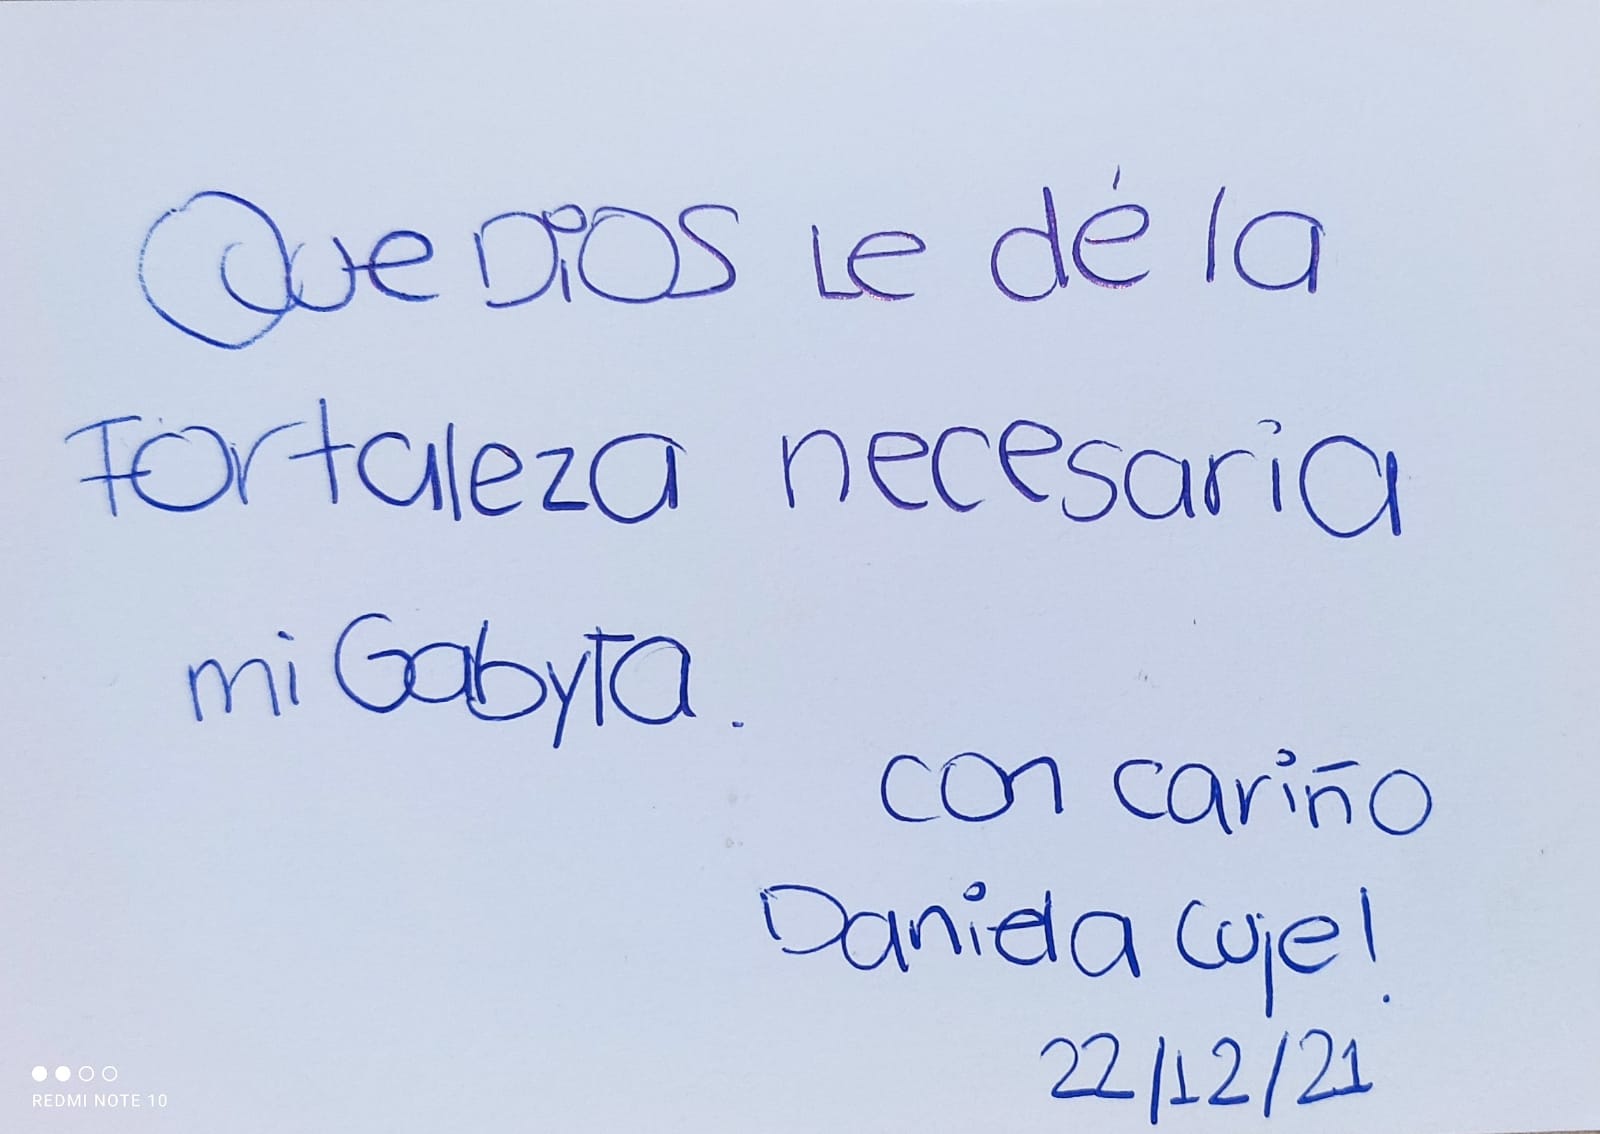 Que Dios le dé la
Fortaleza necesaria
mi Gabyta.
con cariño
Daniela Cuje!
22/12/21
REDMI NOTE 10